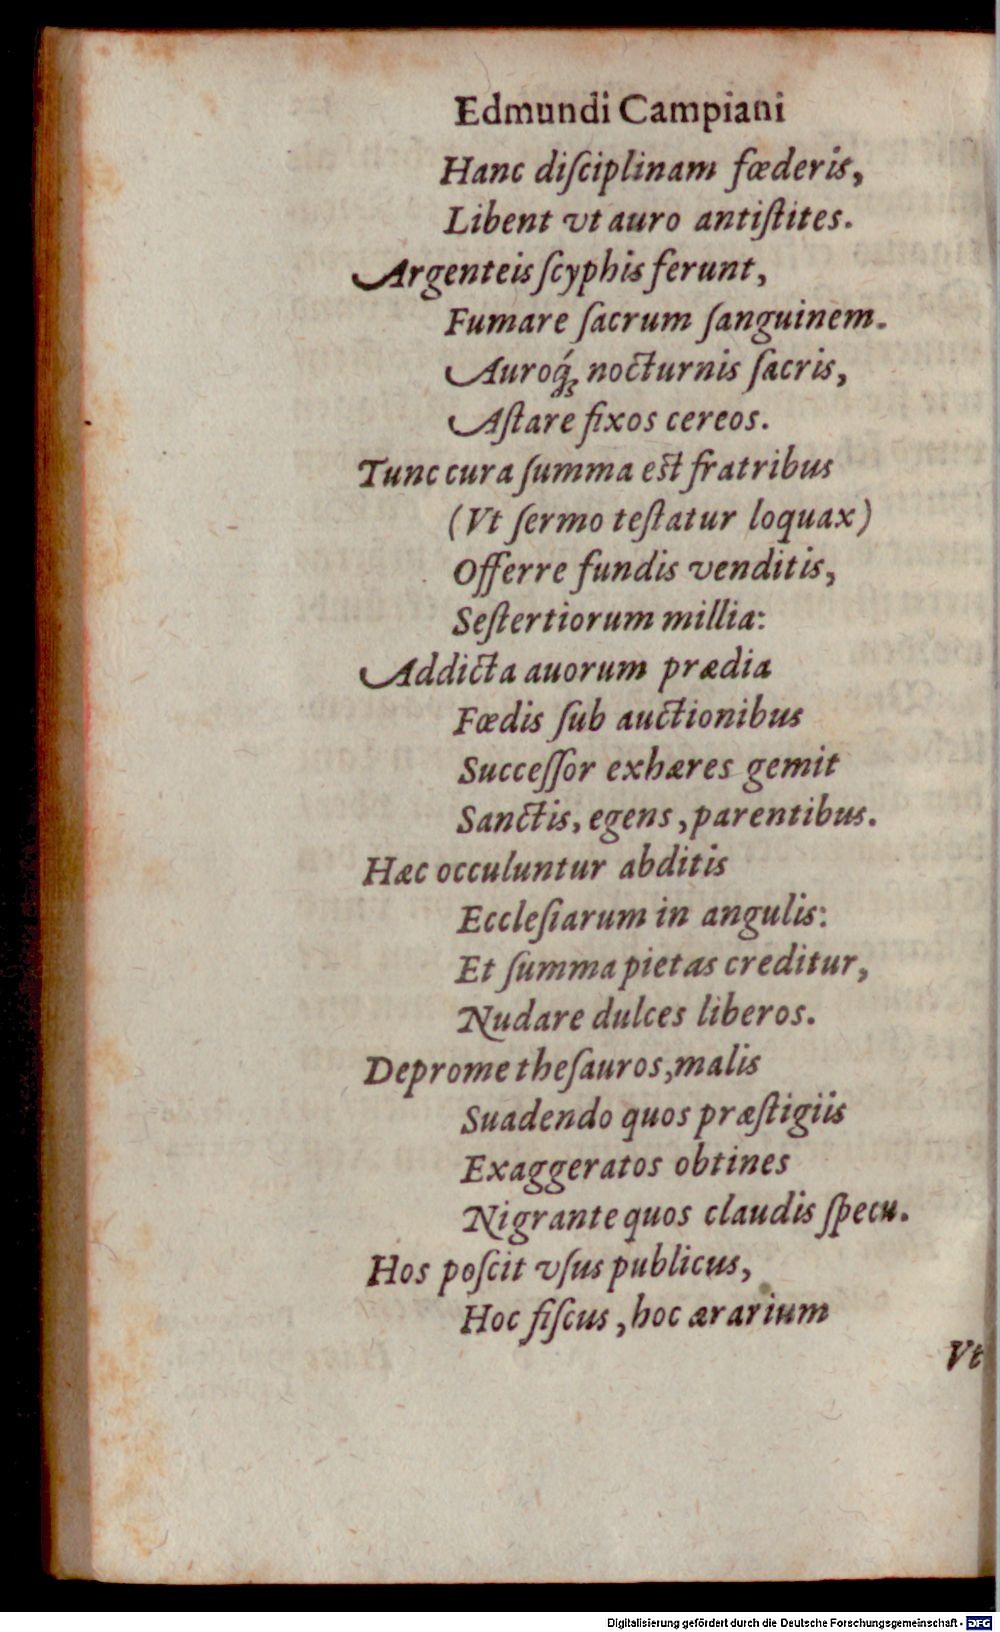 Edmundi Campiani
Hanc diſciplinam fœderis,
Libent vt auro antiſtites.
Argenteis ſcyphis ferunt,
Fumare ſacrum ſanguinem.
Auroq́; nocturnis ſacris,
Aſtare fixos cereos.
Tunc cura ſumma est fratribus
(Vt ſermo teſtatur loquax)
Offerre fundis venditis,
Seſtertiorum millia:
Addicta auorum prædia
Fœdis ſub auctionibus
Succeſſor exhæres gemit
Sanctis, egens, parentibus.
Hæc occuluntur abditis
Eccleſiarum in angulis:
Et ſumma pietas creditur,
Nudare dulces liberos.
Deprome theſauros, malis
Suadendo quos præſtigiis
Exaggeratos obtines
Nigrante quos claudis ſpecu.
Hos poſcit vſus publicus,
Hoc fiſcus, hoc ærarium
Vt
Digitalisierung gefördert durch die Deutsche Forschungsgemeinschaft - DFG